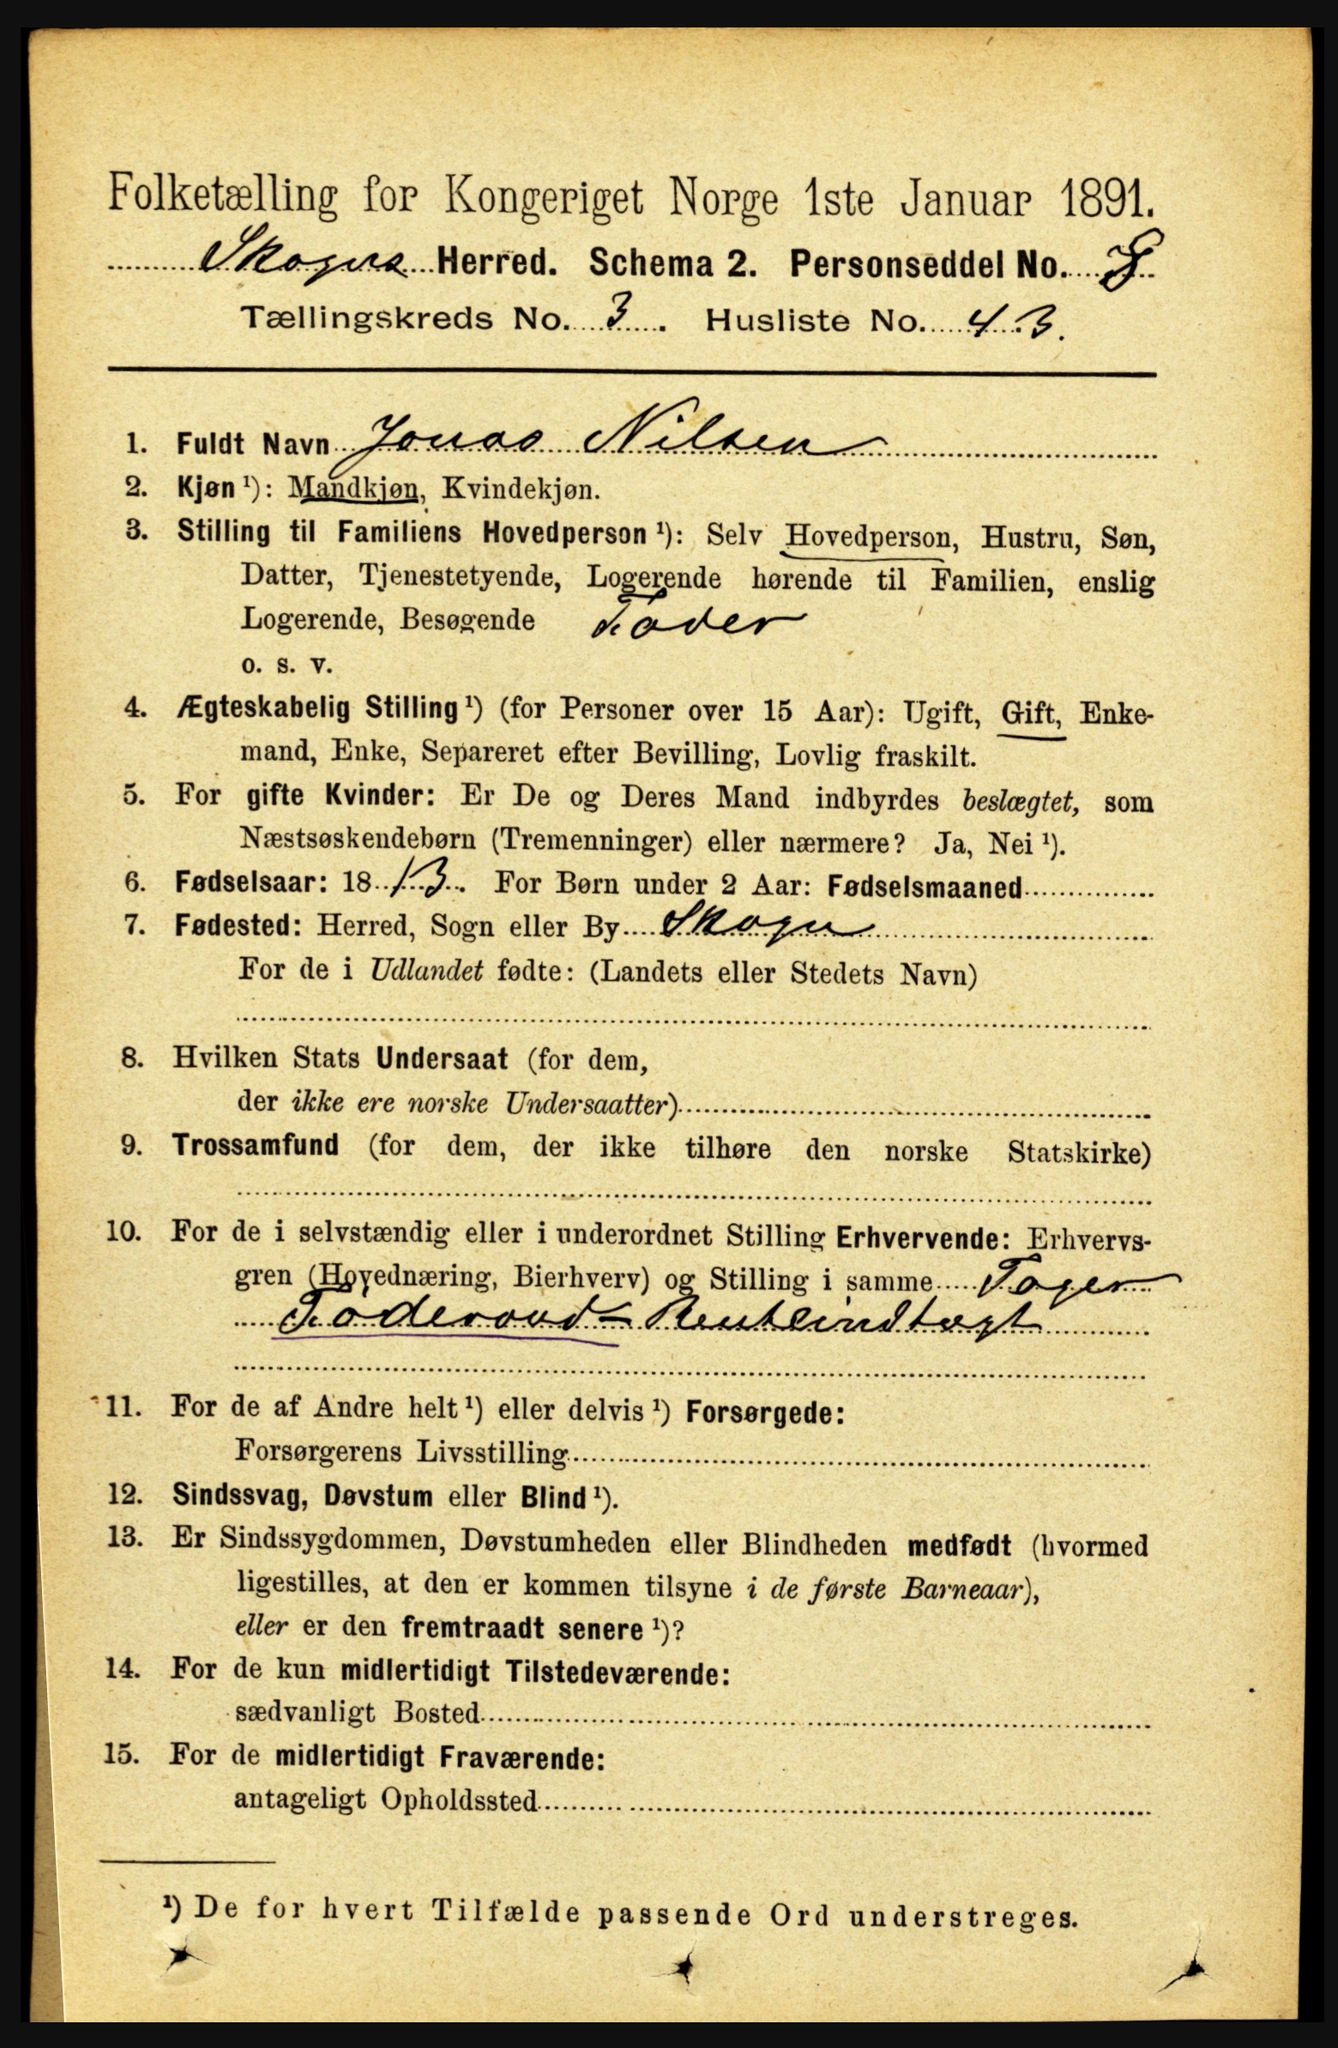 Folketælling for Kongeriget Norge 1ste Januar 1891.
Skogns Herred. Schema 2. Personseddel No. 8
Tællingskreds No. 3. Husliste No. 43.
1. Fuldt Navn Jonas Nilsen
2. Kjøn ¹): Mandkjøn, Kvindekjøn.
3. Stilling til Familiens Hovedperson ¹): Selv Hovedperson, Hustru, Søn,
Datter, Tjenestetyende, Logerende hørende til Familien, enslig
Logerende, Besøgende Foder
o. s. v.
4. Ægteskabelig Stilling ¹) (for Personer over 15 Aar): Ugift, Gift, Enke-
mand, Enke, Separeret efter Bevilling, Lovlig fraskilt.
5. For gifte Kvinder: Er De og Deres Mand indbyrdes beslægtet, som
Næstsøskendebørn (Tremenninger) eller nærmere? Ja, Nei ¹).
6. Fødselsaar: 1813. For Børn under 2 Aar: Fødselsmaaned
7. Fødested: Herred, Sogn eller By Skogn
For de i Udlandet fødte: (Landets eller Stedets Navn)
8. Hvilken Stats Undersaat (for dem,
der ikke ere norske Undersaatter)
9. Trossamfund (for dem, der ikke tilhøre den norske Statskirke)
10. For de i selvstændig eller i underordnet Stilling Erhvervende: Erhvervs-
gren (Hovednæring, Bierhverv) og Stilling i samme Tager
Foderaad
11. For de af Andre helt ¹) eller delvis ¹) Forsørgede:
Forsørgerens Livsstilling
12. Sindssvag, Døvstum eller Blind ¹).
13. Er Sindssygdommen, Døvstumheden eller Blindheden medfødt (hvormed
ligestilles, at den er kommen tilsyne i de første Barneaar),
eller er den fremtraadt senere ¹)?
14. For de kun midlertidigt Tilstedeværende:
sædvanligt Bosted
15. For de midlertidigt Fraværende:
antageligt Opholdssted
¹) De for hvert Tilfælde passende Ord understreges.